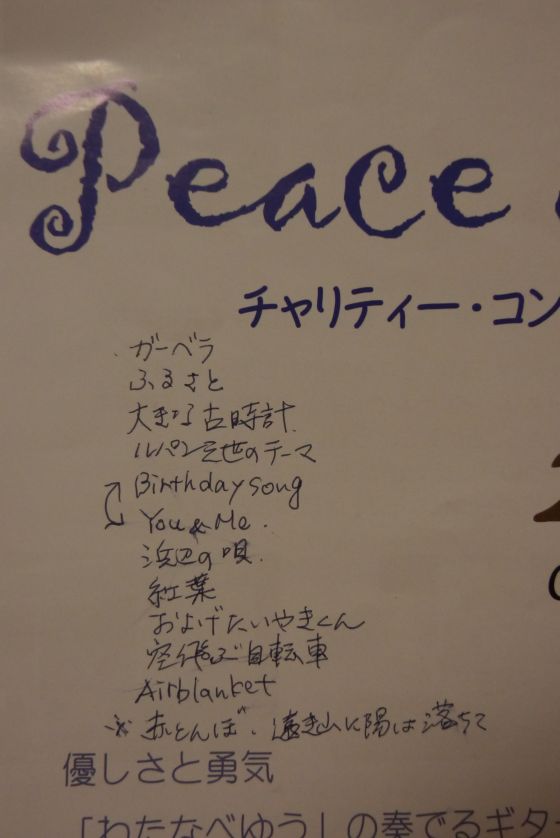 Peace
チャリティー・コン
・ガーベラ
ふるさと
大きな古時計
ルパン三世のテーマ
Birthday song
You & Me.
浜辺の唄.
紅葉
およげたいやきくん
空飛ぶ自転車
Airblanket
※赤とんぼ・遠き山に陽は落ちて
優しさと勇気
「わたなべゆう」の奏でるギタ